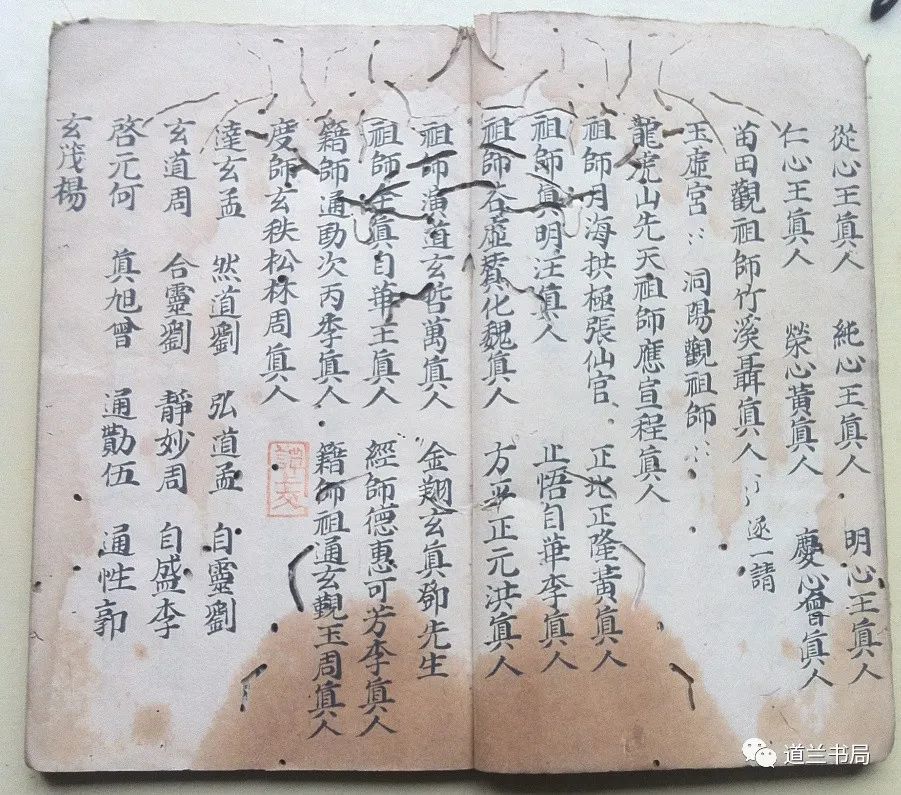 從心王真人 純心王真人 明心王真人
仁心王真人 榮心黃真人 慶心會真人
苗田觀祖師竹溪聶真人 逐一請
玉虛宮 洞陽觀祖師
龍虎山先天祖師應宣程真人
祖師月海拱極張仙官 正北正隆黃真人
祖師真明汪真人 止悟自華李真人
祖師谷虛賛化魏真人 方平正元洪真人
祖師演道玄哲萬真人 金翔玄真鄧先生
祖師全真自華王真人 經師德惠可芳李真人
籍師通勛次丙李真人 籍師祖通玄觀玉周真人
度師玄秩松林周真人
達玄孟 然道劉 弘道孟 自靈劉
玄道周 合靈劉 靜妙周 自盛李
啓元何 真旭曾 通勷伍 通性郭
玄茂楊
道兰书局